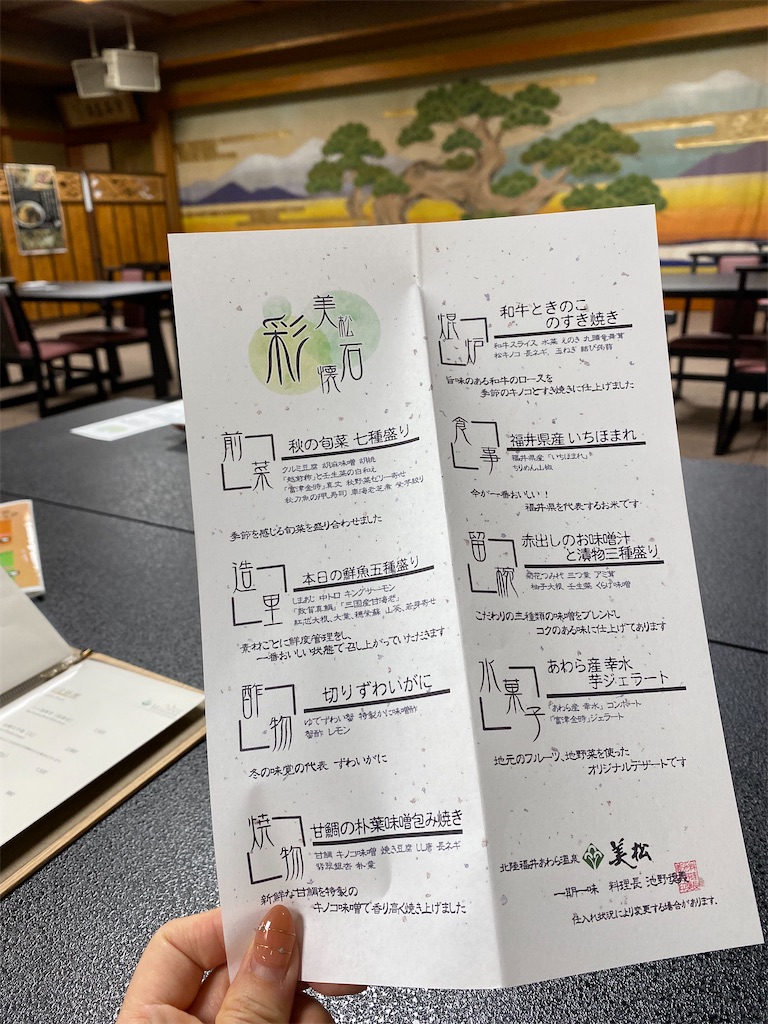 美松
彩
懐石
前菜
秋の旬菜 七種盛り
クルミ豆腐 胡麻味噌 胡桃
「越前柿」と壬生菜の白和え
「富津金時」真丈 秋野菜ゼリー寄せ
秋刀魚の押し寿司 車海老芝煮 栄芋絞り
季節を感じる旬菜を盛り合わせました
造里
本日の鮮魚五種盛り
しまあじ 中トロ キングサーモン
「敦賀真鯛」「三国産甘海老」
紅芯大根、大葉、穂紫蘇 山葵、若芽寄せ
素材ごとに鮮度管理をし、
一番おいしい状態で召し上がっていただきます
酢物
切りずわいがに
ゆでずわい蟹 特製かに味噌酢
蟹酢 レモン
冬の味覚の代表 ずわいがに
焼物
甘鯛の朴葉味噌包み焼き
甘鯛 キノコ味噌 焼き豆腐 しし唐 長ネギ
翡翠銀杏 朴葉
新鮮な甘鯛を特製の
キノコ味噌で香り高く焼き上げました
焜炉
和牛ときのこ
のすき焼き
和牛スライス 水菜 えのき 丸頭舞茸
松キノコ 長ネギ、玉ねぎ 結び蒟蒻
旨味のある和牛のロースを
季節のキノコとすき焼きに仕上げました
食事
福井県産 いちほまれ
福井県産、"いちほまれ"
ちりめん山椒
今が一番おいしい！
福井県を代表するお米です
留椀
赤出しのお味噌汁
と漬物三種盛り
菊花つみれ 三つ葉 アミ茸
柚子大根 壬生菜 くらげ味噌
こだわりの三種類の味噌をブレンドし
コクのある味に仕上げております
水菓子
あわら産 幸水
芋ジェラート
「あわら産 幸水」コンポート
「富津金時」ジェラート
地元のフルーツ、地野菜を使った
オリジナルデザートです
北陸福井あわら温泉 美松
一期一味 料理長 池野
仕入れ状況により変更する場合があります。